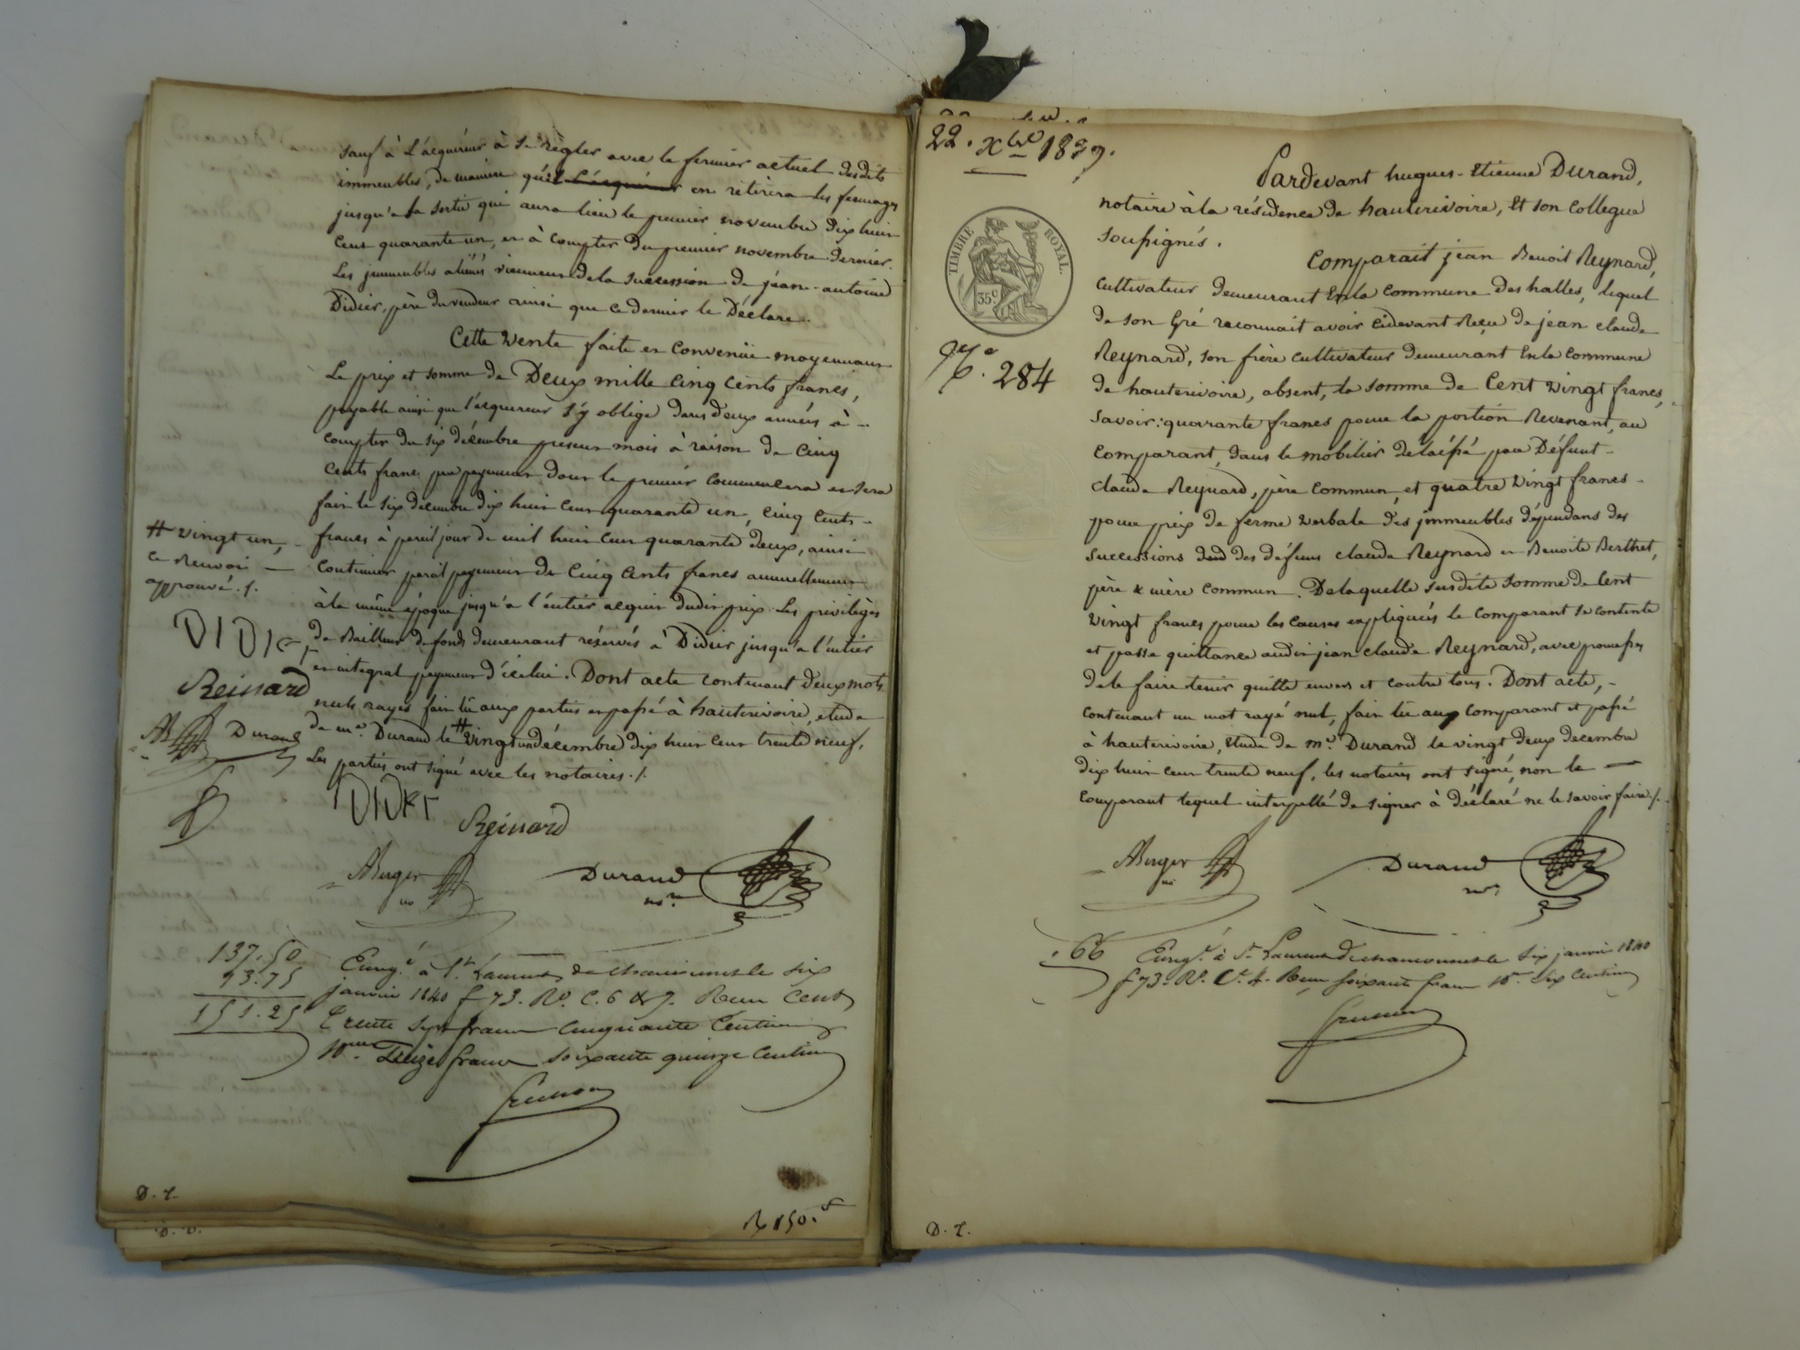 sauf à L'acquéreur à se règler avec le fermier actuel desdits
immeubles, de manière qu'il L'acquéreur en retirera les fermages
jusqu'a sa sortie qui aura lieu le premier novembre dix huit
cent quarante un, et à compter du premier novembre dernier.
Les immeubles aliénés viennent de la succession de jean-antoine
Didier, père du vendeur ainsi que ce dernier le Déclare.
Cette vente faite et convenüe moyennant
Le prix et somme de Deux mille cinq cents francs,
payable ainsi que l'acquereur s'y oblige dans deux années à
compter du six décembre present mois à raison de cinq
cents francs par payement dont le premier commencera et sera
fait le six décembre dix huit cent quarante un, cinq cents
francs à pareil jour de mil huit cent quarante deux, ainsi
continuer pareil payement de cinq cents francs annuellement
à la même époque jusqu'a l'entier acquit dudit prix. Les privilèges
de Bailleur de fonds demeurant réservés à Didier jusqu'a l'entier
et integral payement d'icelui. Dont acte contenant deux mots
nuls rayés fait lu aux parties et passé à hauterivoire, etude
de me. Durand le # vingt un décembre dix huit cent trente neuf,
Les parties ont signé avec les notaires ./.
# vingt un,
ce Renvoi
approuvé ./.
DIDIER
Reinard
Durand
DIDIER
Reinard
ABerger
no
Durand
nore
137.50
13.75
151.25
Enrgé. à St. Laurent de chamousset le six
janvier 1840 f 73. Ro. C. 6 & 7. Reçu cent
trente sept francs cinquante centimes
10me Treize francs soixante quinze centimes
D. D.
D. D.
22. Xbre 1839.
TIMBRE ROYAL.
35c
No. 284
Pardevant hugues-Etienne Durand,
notaire à la résidence de hauterivoire, Et son Collegue
soussignés.
Comparait jean Benoit Reynard,
cultivateur demeurant En la commune des halles, lequel
de son Gré reconnait avoir cidevant Reçu de jean claude
Reynard, son frère cultivateur demeurant En la commune
de hauterivoire, absent, la somme de Cent vingt francs,
savoir: quarante francs pour la portion Revenant, au
comparant, dans le mobilier délaissé par Défunt
claude Reynard, père commun, et quatre vingt francs
pour prix de ferme verbale des immeubles dépendans des
successions des défunts claude Reynard et Benoite Berthet,
père & mère commun. De laquelle susdite somme de Cent
vingt francs pour les causes expliquées le comparant se contente
et passe quittance audit jean claude Reynard, avec promesse
de le faire tenir quitte envers et contre tous. Dont acte,
contenant un mot rayé nul, fait lu au comparant et passé
à hauterivoire, Etude de me. Durand le vingt deux decembre
dix huit cent trente neuf, les notaires ont signé, non le
comparant lequel interpellé de signer à déclaré ne le savoir faire ./.
ABerger
no
Durand
nore
66
Enrgé. à St. Laurent de chamousset le six janvier 1840
f 73. Ro. Ce. 4. Reçu soixante francs 10me. six centimes
D. D.